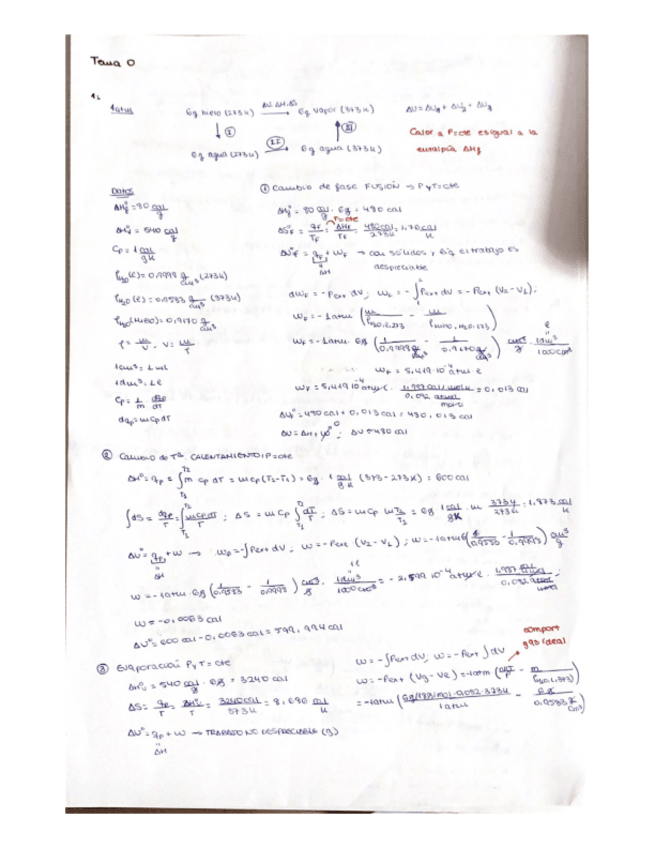 Tema 0
1.
1 atm
6g hielo (273K) → ΔU, ΔH, ΔS → 6g vapor (373K)
ΔU = ΔU₁ + ΔU₂ + ΔU₃
↓ Ⅰ
↑ Ⅲ
6g agua (273K) → Ⅱ → 6g agua (373K)
Calor a P=cte es igual a la
entalpía ΔH
Datos
ΔHf° = 80 cal/g
ΔHv° = 540 cal/g
Cp = 1 cal/gK
ρH₂O(l) = 0,9998 g/cm³ (273K)
ρH₂O(l) = 0,9583 g/cm³ (373K)
ρH₂O(hielo) = 0,9170 g/cm³
ρ = m/V · V = m/ρ
1cm³ = 1 mL
1dm³ = 1 l
Cp = 1/m dqp/dT
dqp = m Cp dT
① Cambio de fase FUSIÓN → P y T = cte
ΔHf° = 80 cal/g · 6g = 480 cal
P=cte
ΔSf° = qf/Tf = ΔHf/Tf = 480 cal/273K = 1,76 cal/K
ΔUf° = qf + Wf → con sólidos y líq el trabajo es
ΔH
despreciable
dWf = -Pext dV; Wf = -∫Pext dV = -Pext (V₂ - V₁);
Wf = -1atm (m/ρH₂O,l,273 - m/ρhielo,H₂O,273)
Wf = -1atm · 6g (1/0,9998 g/cm³ - 1/0,9170 g/cm³) cm³/g · 1dm³/1000cm³
Wf = 5,419·10⁻⁴ atm·l
Wf = 5,419·10⁻⁴ atm·l · 1,987 cal/mol K / 0,082 atm l/mol K = 0,013 cal
ΔU° = 480 cal + 0,013 cal = 480,013 cal
ΔU = ΔH + W; ΔU ≈ 480 cal
② Cambio de Tª. CALENTAMIENTO: P=cte
ΔH° = qp = ∫ m Cp dT = m Cp (T₂-T₁) = 6g · 1 cal/gK (373-273K) = 600 cal
∫dS = dqp/T = ∫ m Cp dT/T; ΔS = m Cp ∫ dT/T; ΔS = m Cp ln T₂/T₁ = 6g 1 cal/gK · ln 373K/273K = 1,873 cal/K
ΔU° = qp + W → Wp = -∫Pext dV; W = -Pext (V₂ - V₁); W = -1atm · 6 (1/0,9583 - 1/0,9998) cm³/g
ΔH
W = -1atm · 6g (1/0,9583 - 1/0,9998) cm³/g · 1dm³/1000cm³ = -2,599·10⁻⁴ atm·l · 1,987 cal/mol K / 0,082 atm l/mol K;
W = -0,0063 cal
ΔU° = 600 cal - 0,0063 cal = 599,994 cal
③ Evaporación P y T = cte
ΔHv° = 540 cal/g · 6g = 3240 cal
ΔS = qp/T = ΔHv°/T = 3240 cal/373K = 8,686 cal/K
ΔU° = qp + W → TRABAJO NO DESPRECIABLE (g)
ΔH
comport
gas ideal
W = -∫Pext dV; W = -Pext ∫dV
W = -Pext (Vg - Vl) = -1atm (nRT/P - m/ρH₂O(l,373))
= -1atm (6g/18g/mol · 0,082 · 373K / 1atm - 6g / 0,9583 g/cm³)